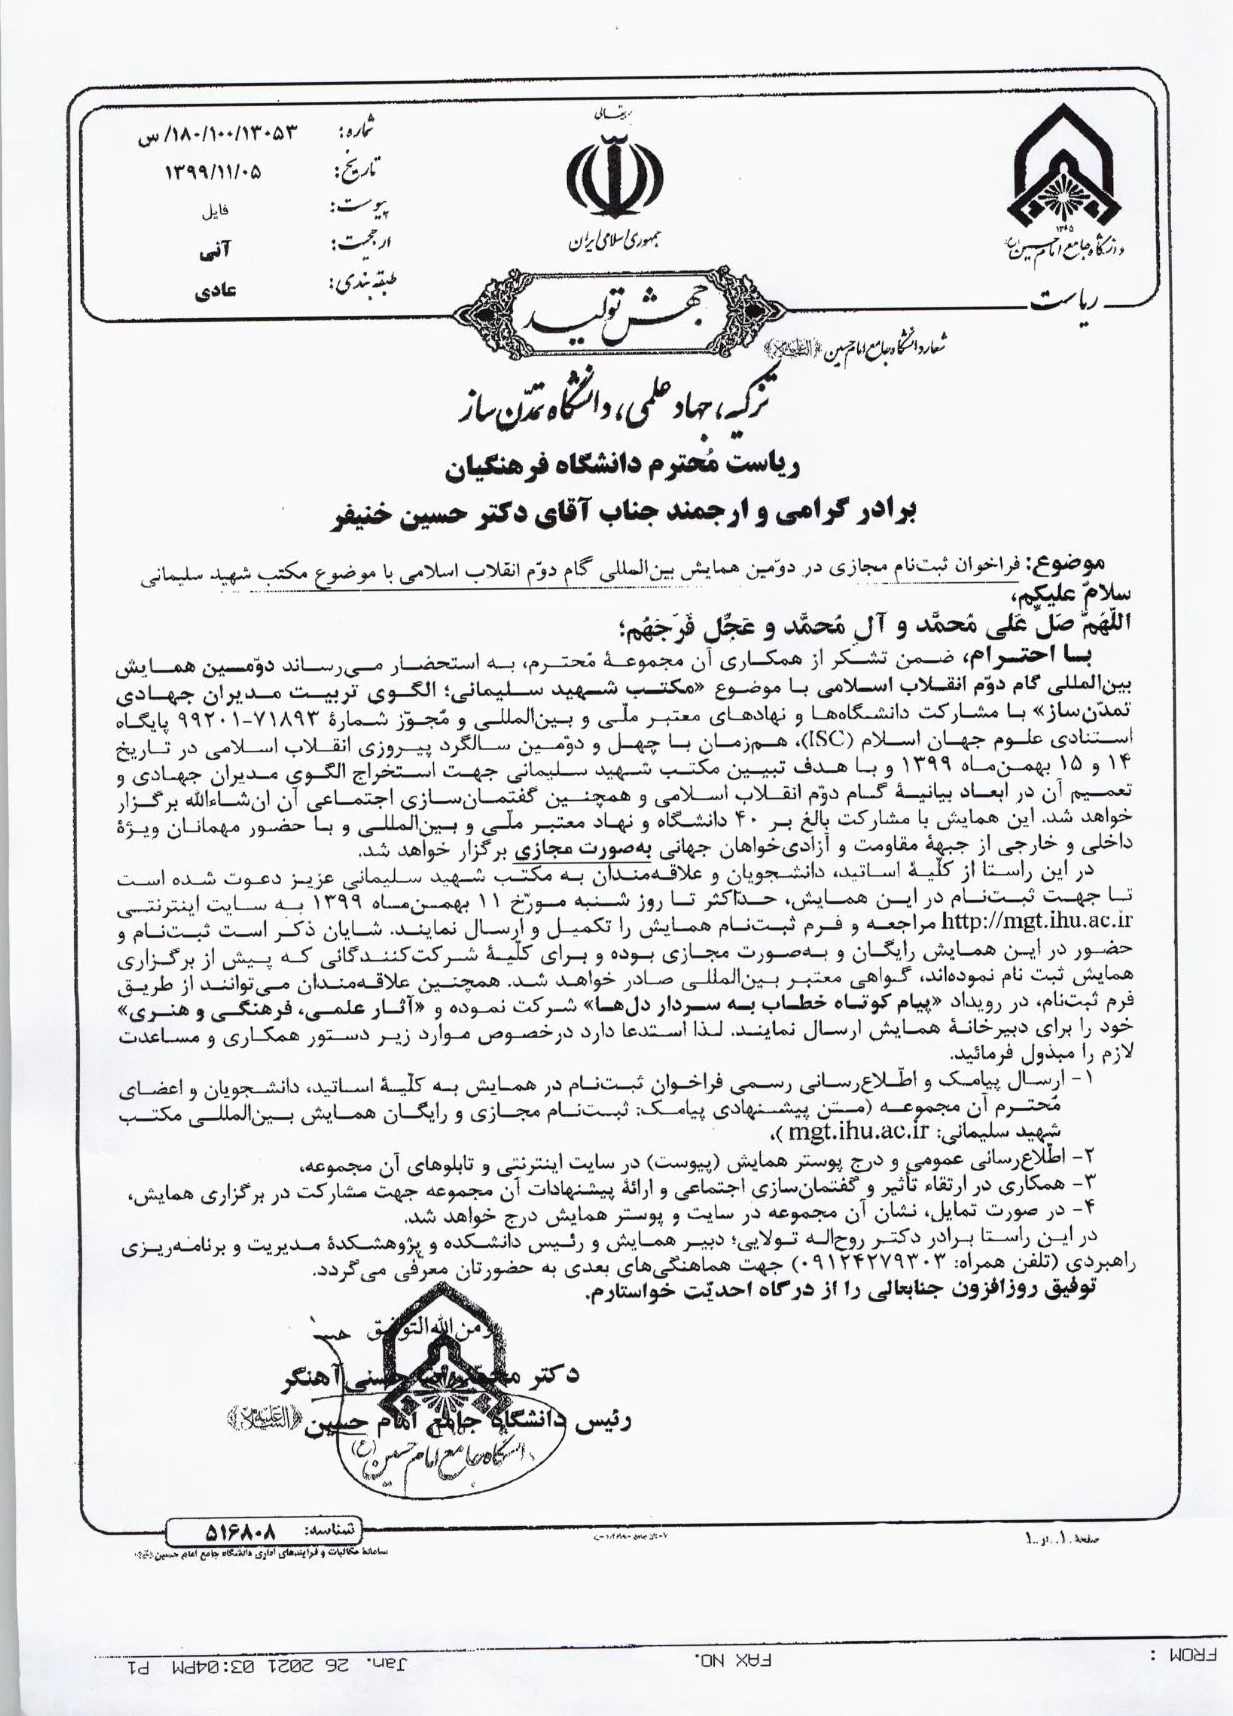 بسمه تعالی
جمهوری اسلامی ایران
۱۳۶۵
دانشگاه جامع امام حسین
ریاست
شماره: ۱۸۰/۱۰۰/۱۳۰۵۳/س
تاریخ: ۱۳۹۹/۱۱/۰۵
پیوست: فایل
ارجحیت: آنی
طبقه بندی: عادی
جهش تولید
شعار دانشگاه جامع امام حسین (علیه‌السلام)
تزکیه، جهاد علمی، دانشگاه تمدّن ساز
ریاست مُحترم دانشگاه فرهنگیان
برادر گرامی و ارجمند جناب آقای دکتر حسین خنیفر
موضوع: فراخوان ثبت‌نام مجازی در دوّمین همایش بین‌المللی گام دوّم انقلاب اسلامی با موضوع مکتب شهید سلیمانی
سلامٌ علیکم،
اللّهُمَّ صَلِّ عَلی مُحمَّد و آلِ مُحمَّد و عَجِّل فَرَجَهُم؛
بـا احتـرام، ضـمن تشـکر از همکـاری آن مجموعـهٔ مُحتـرم، بـه استحضـار مـی‌رسـاند دوّمـین همـایش
بین‌المللی گام دوّم انقـلاب اسـلامی بـا موضـوع «مکتـب شـهید سـلیمانی؛ الگـوی تربیـت مـدیران جهـادی
تمدّن‌ساز» بـا مشـارکت دانشـگاه‌هـا و نهادهـای معتبـر ملّـی و بـین‌المللـی و مُجـوّز شـمارهٔ ۷۱۸۹۳-۹۹۲۰۱ پایگـاه
اسـتنادی علـوم جهـان اسـلام (ISC)، هـم‌زمـان بـا چهـل و دوّمـین سـالگرد پیـروزی انقـلاب اسـلامی در تـاریخ
۱۴ و ۱۵ بهمـن‌مـاه ۱۳۹۹ و بـا هـدف تبیـین مکتـب شـهید سـلیمانی جهـت اسـتخراج الگـوی مـدیران جهـادی و
تعمـیم آن در ابعـاد بیانیـهٔ گـام دوّم انقـلاب اسـلامی و همچنـین گفتمـان‌سـازی اجتمـاعی آن ان‌شـاءالله برگـزار
خواهـد شـد. ایـن همـایش بـا مشـارکت بـالغ بـر ۴۰ دانشـگاه و نهـاد معتبـر ملّـی و بـین‌المللـی و بـا حضـور مهمانـان ویـژهٔ
داخلی و خارجی از جبههٔ مقاومت و آزادی‌خواهان جهانی به‌صورت مجازی برگزار خواهد شد.
در این راسـتا از کلّیـهٔ اسـاتید، دانشـجویان و علاقـه‌منـدان بـه مکتـب شـهید سـلیمانی عزیـز دعـوت شـده اسـت
تـا جهـت ثبـت‌نـام در ایـن همـایش، حـداکثر تـا روز شـنبه مـورّخ ۱۱ بهمـن‌مـاه ۱۳۹۹ بـه سـایت اینترنتـی
http://mgt.ihu.ac.ir مراجعـه و فـرم ثبـت‌نـام همـایش را تکمیـل و ارسـال نماینـد. شـایان ذکـر اسـت ثبـت‌نـام و
حضـور در ایـن همـایش رایگـان و بـه‌صـورت مجـازی بـوده و بـرای کلّیـهٔ شـرکت‌کننـدگانی کـه پـیش از برگـزاری
همایش ثبت نام نموده‌اند، گـواهی معتبـر بـین‌المللـی صـادر خواهـد شـد. همچنـین علاقـه‌منـدان مـی‌تواننـد از طریـق
فرم ثبت‌نام، در رویـداد «پیـام کوتـاه خطـاب بـه سـردار دل‌هـا» شـرکت نمـوده و «آثـار علمـی، فرهنگـی و هنـری»
خود را برای دبیرخانـهٔ همـایش ارسـال نماینـد. لـذا اسـتدعا دارد درخصـوص مـوارد زیـر دسـتور همکـاری و مسـاعدت
لازم را مبذول فرمائید.
۱- ارسـال پیامـک و اطّـلاع‌رسـانی رسـمی فراخـوان ثبـت‌نـام در همـایش بـه کلّیـهٔ اسـاتید، دانشـجویان و اعضـای
مُحتـرم آن مجموعـه (مـتن پیشـنهادی پیامـک: ثبـت‌نـام مجـازی و رایگـان همـایش بـین‌المللـی مکتـب
شهید سلیمانی: mgt.ihu.ac.ir )،
۲- اطّلاع‌رسانی عمومی و درج پوستر همایش (پیوست) در سایت اینترنتی و تابلوهای آن مجموعه،
۳- همکاری در ارتقاء تأثیر و گفتمان‌سازی اجتماعی و ارائهٔ پیشنهادات آن مجموعه جهت مشارکت در برگزاری همایش،
۴- در صورت تمایل، نشان آن مجموعه در سایت و پوستر همایش درج خواهد شد.
در ایـن راسـتا بـرادر دکتـر روح‌الـه تـولایی؛ دبیـر همـایش و رئـیس دانشـکده و پژوهشـکدهٔ مـدیریت و برنامـه‌ریـزی
راهبردی (تلفن همراه: ۰۹۱۲۴۲۷۹۳۰۳) جهت هماهنگی‌های بعدی به حضورتان معرّفی می‌گردد.
توفیق روزافزون جنابعالی را از درگاه احدیّت خواستارم.
و من الله التوفیق
دکتر محمّدرضا حسنی آهنگر
رئیس دانشگاه جامع امام حسین (علیه‌السلام)
دانشگاه جامع امام حسین (ع)
شناسه: ۵۱۶۸۰۸
سامانهٔ مکاتبات و فرآیندهای اداری دانشگاه جامع امام حسین
صفحه ۱ از ۱
FROM : FAX NO. Jan. 26 2021 03:04PM P1